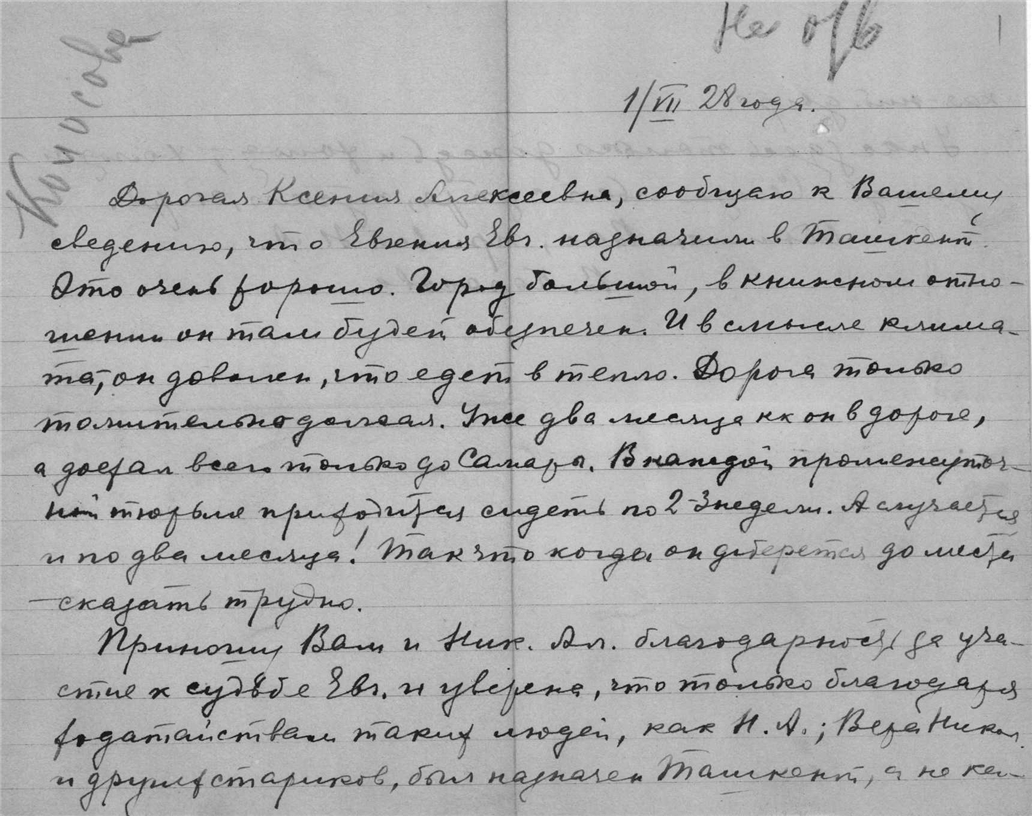 Коносова
Не отв
1/VII 28 года.
Дорогая Ксения Алексеевна, сообщаю к Вашему
сведению, что Евгения Евг. назначили в Ташкент.
Это очень хорошо. Город большой, в книжном отно-
шении он там будет обеспечен. И в смысле клима-
та, он доволен, что едет в тепло. Дорога только
томительно долгая. Уже два месяца как он в дороге,
а доехал всего только до Самары. В каждой промежуточ-
ной тюрьме приходится сидеть по 2-3 недели. А случается
и по два месяца! Так что когда он доберется до места
– сказать трудно.
Приношу Вам и Ник. Ал. благодарность за уча-
стие к судьбе Евг. и уверена, что только благодаря
ходатайствам таких людей, как Н. А.; Вера Никол.
и других стариков, был назначен Ташкент, а не ка-